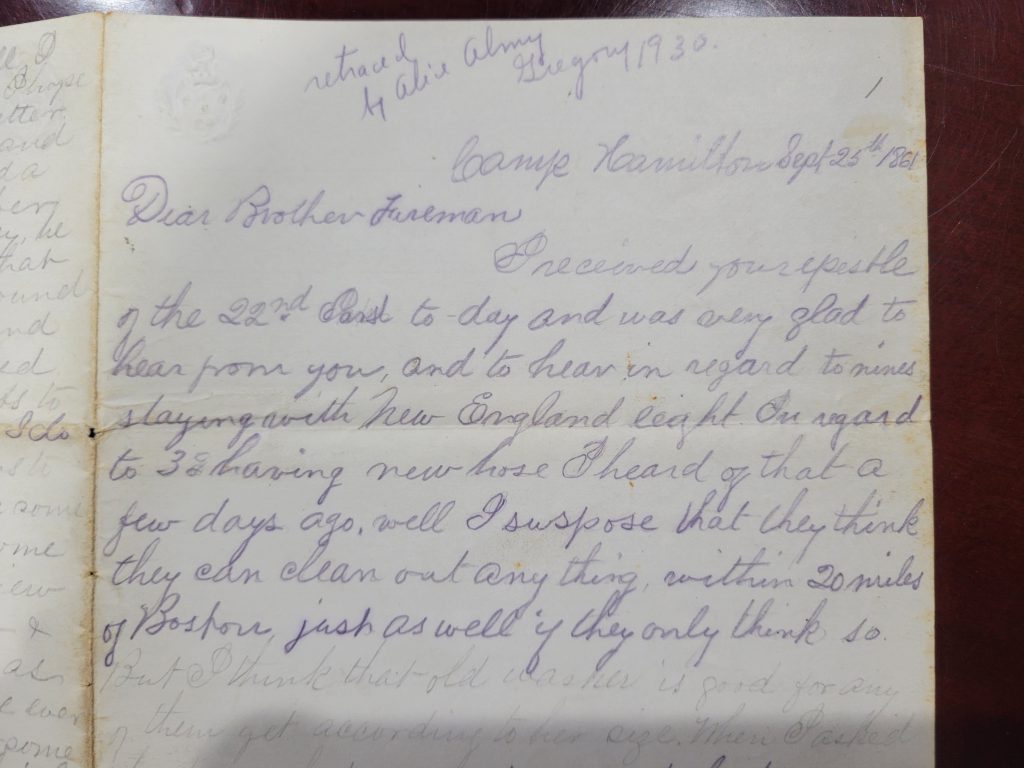 retraced
by Alice Almy
Gregory 1930.
1
Camp Hamilton Sept 25th 1861
Dear Brother Fireman
I received your epestle
of the 22nd to-day and was very glad to
hear from you, and to hear in regard to nines
staying with New England eight. In regard
to 3s having new hose I heard of that a
few days ago, well I suspose that they think
they can clean out any thing, within 20 miles
of Boston, just as well if they only think so.
But I think that old washer is good for any
of them yet according to her size. When I asked
I
I hope
etter
and
d a
he
that
ound
nd
ed
to
I do
some
ome
iew
&
as
ever
some